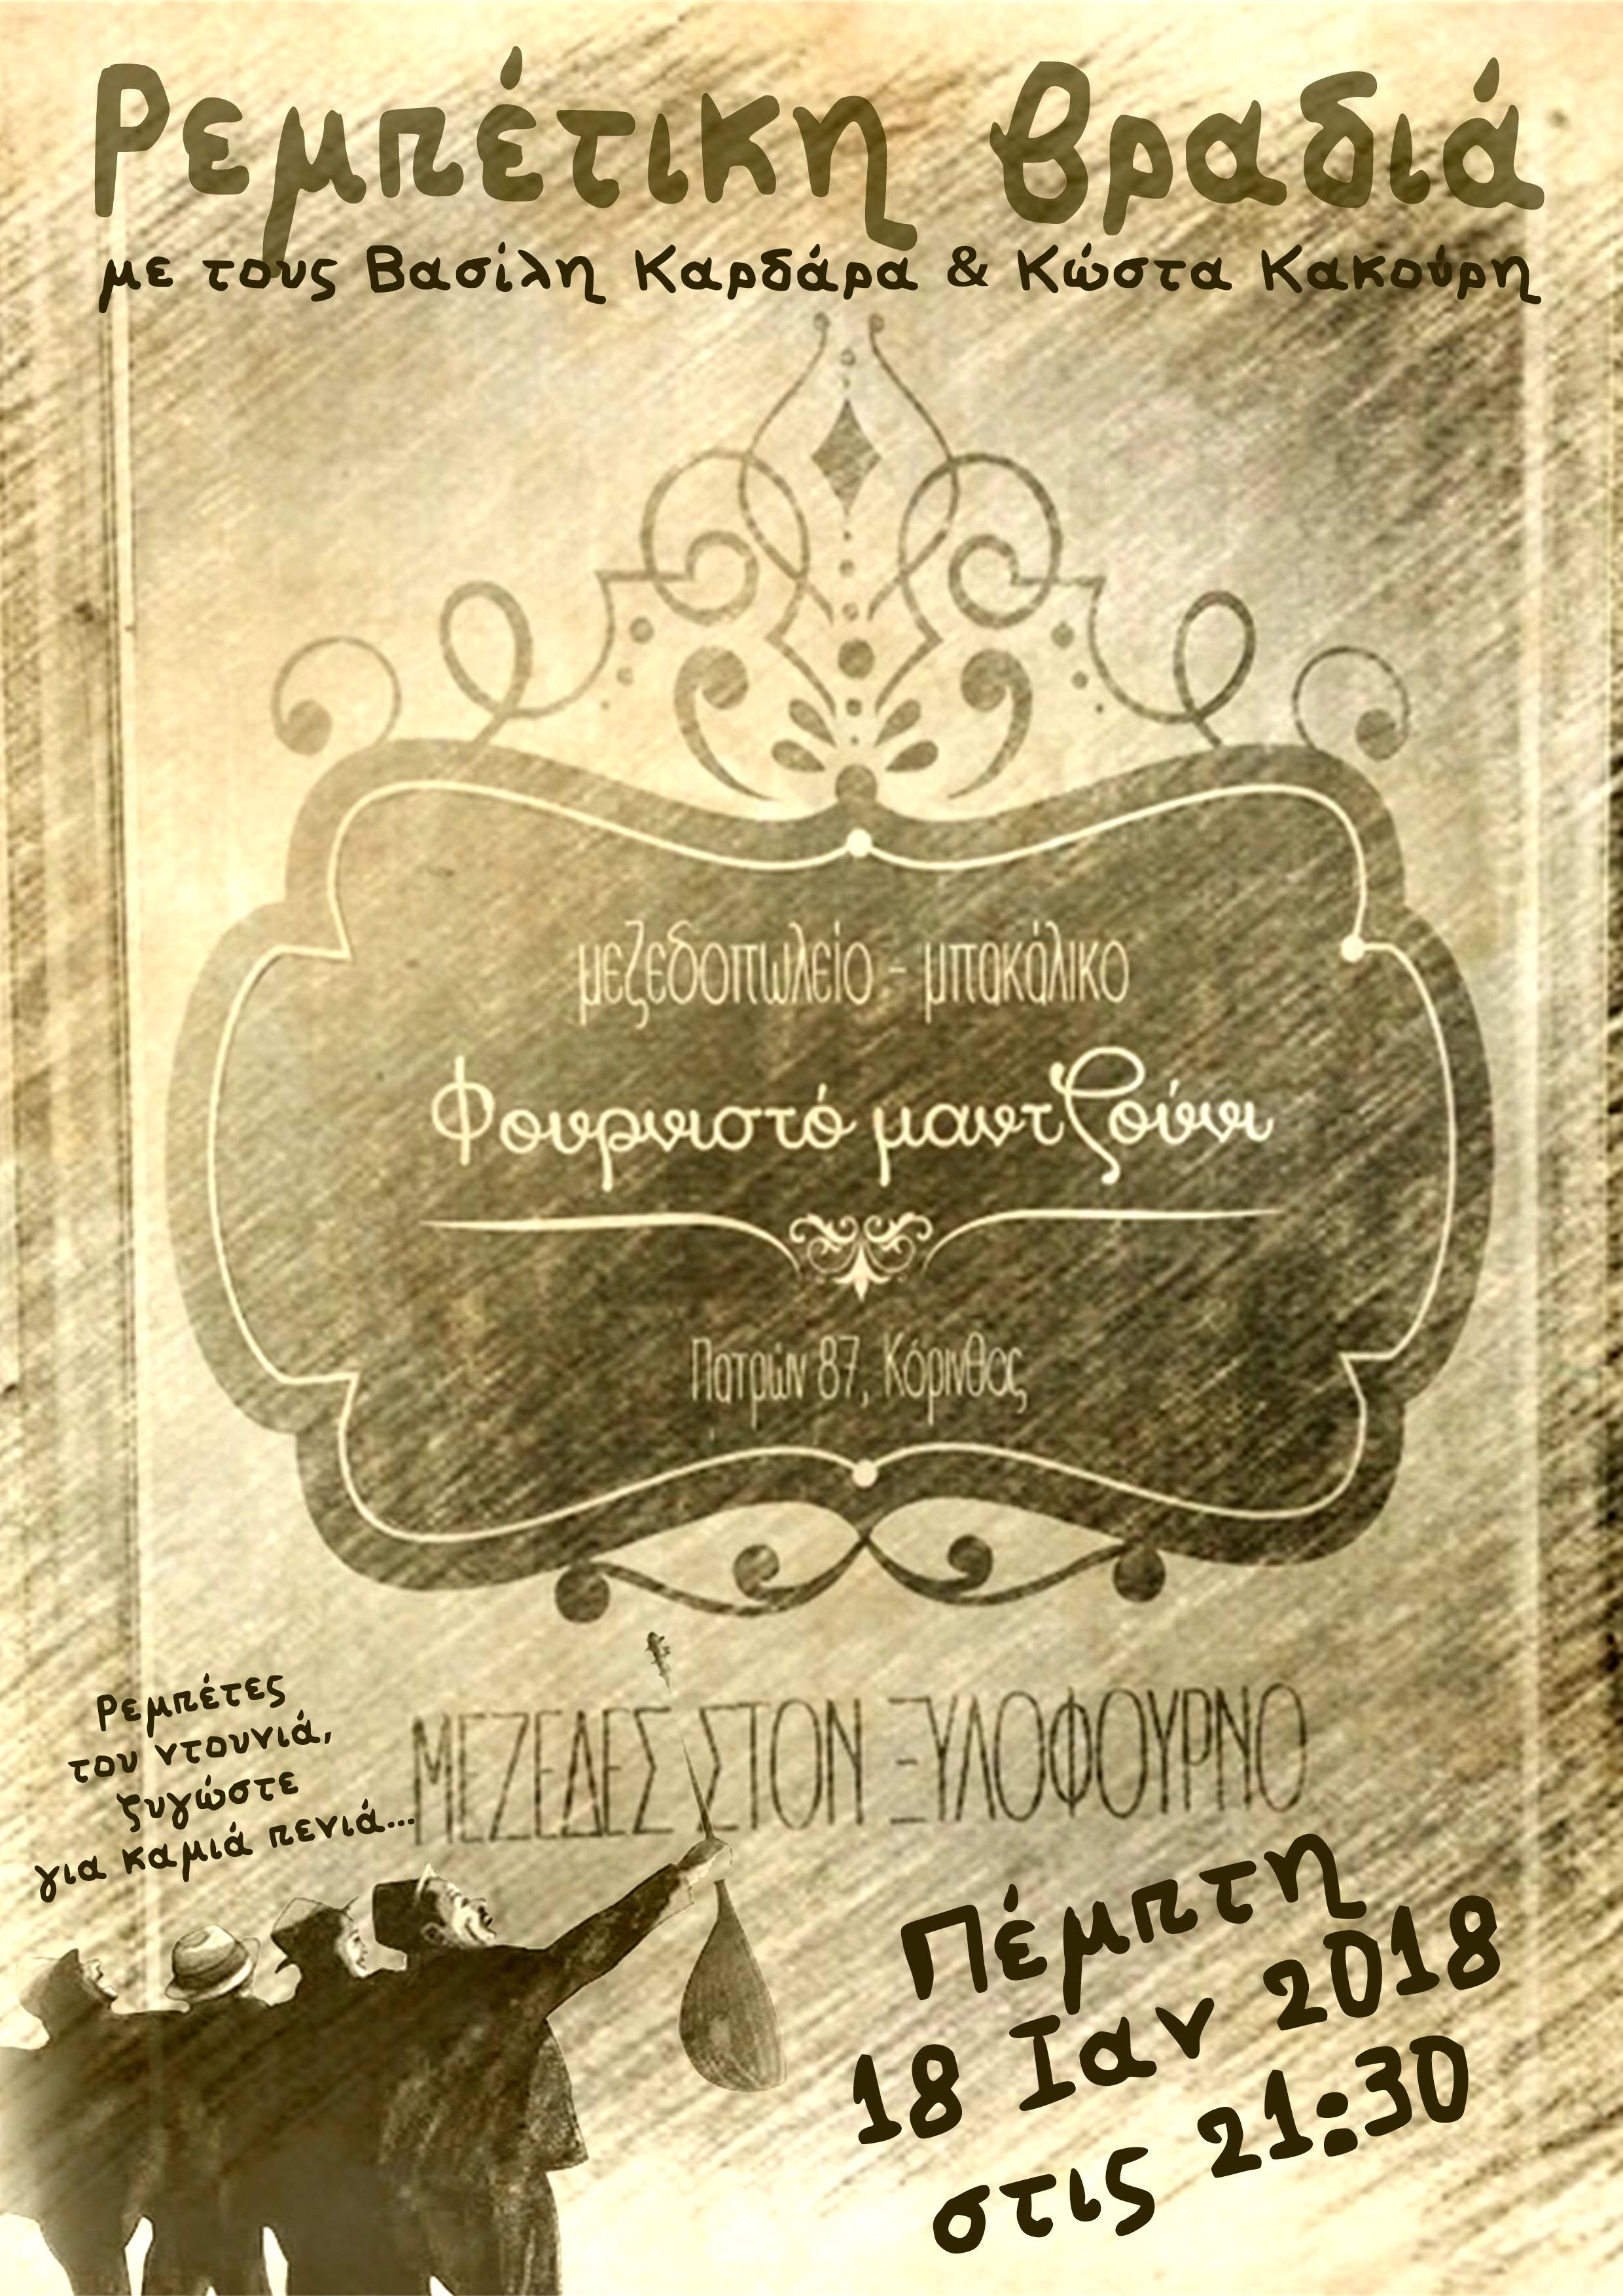 Ρεμπέτικη βραδιά
με τους Βασίλη Καρδάρα & Κώστα Κακούρη
μεζεδοπωλείο - μπακάλικο
Φουρνιστό μαντζούνι
Πατρών 87, Κόρινθος
ΜΕΖΕΔΕΣ ΣΤΟΝ ΞΥΛΟΦΟΥΡΝΟ
Ρεμπέτες
του ντουνιά,
ζυγώστε
για καμιά πενιά...
Πέμπτη
18 Ιαν 2018
στις 21:30